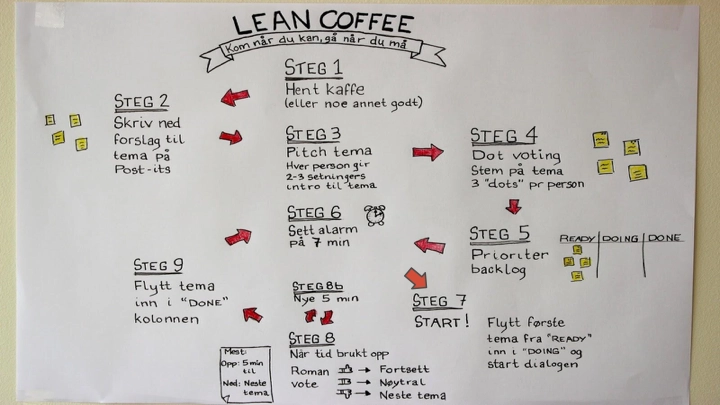 LEAN COFFEE
Kom når du kan, gå når du må
STEG 1
Hent kaffe
(eller noe annet godt)
STEG 2
Skriv ned
forslag til
tema på
Post-its
STEG 3
Pitch tema
Hver person gir
2-3 setningers
intro til tema
STEG 4
Dot voting
Stem på tema
3 "dots" pr person
STEG 5
Prioriter
backlog
READY DOING DONE
STEG 6
Sett alarm
på 7 min
STEG 7
START!
Flytt første
tema fra "READY"
inn i "DOING" og
start dialogen
STEG 8b
Nye 5 min
STEG 8
Når tid brukt opp
Roman
vote
→ Fortsett
→ Nøytral
→ Neste tema
Mest:
Opp: 5 min
til
Ned: Neste
tema
STEG 9
Flytt tema
inn i "DONE"
kolonnen